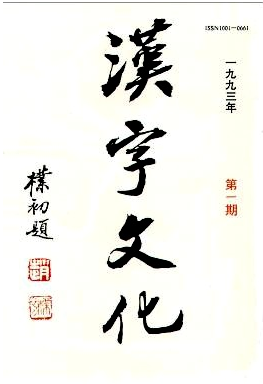 ISSN1001-0661
一九九三年
第一期
漢字文化
樸初題